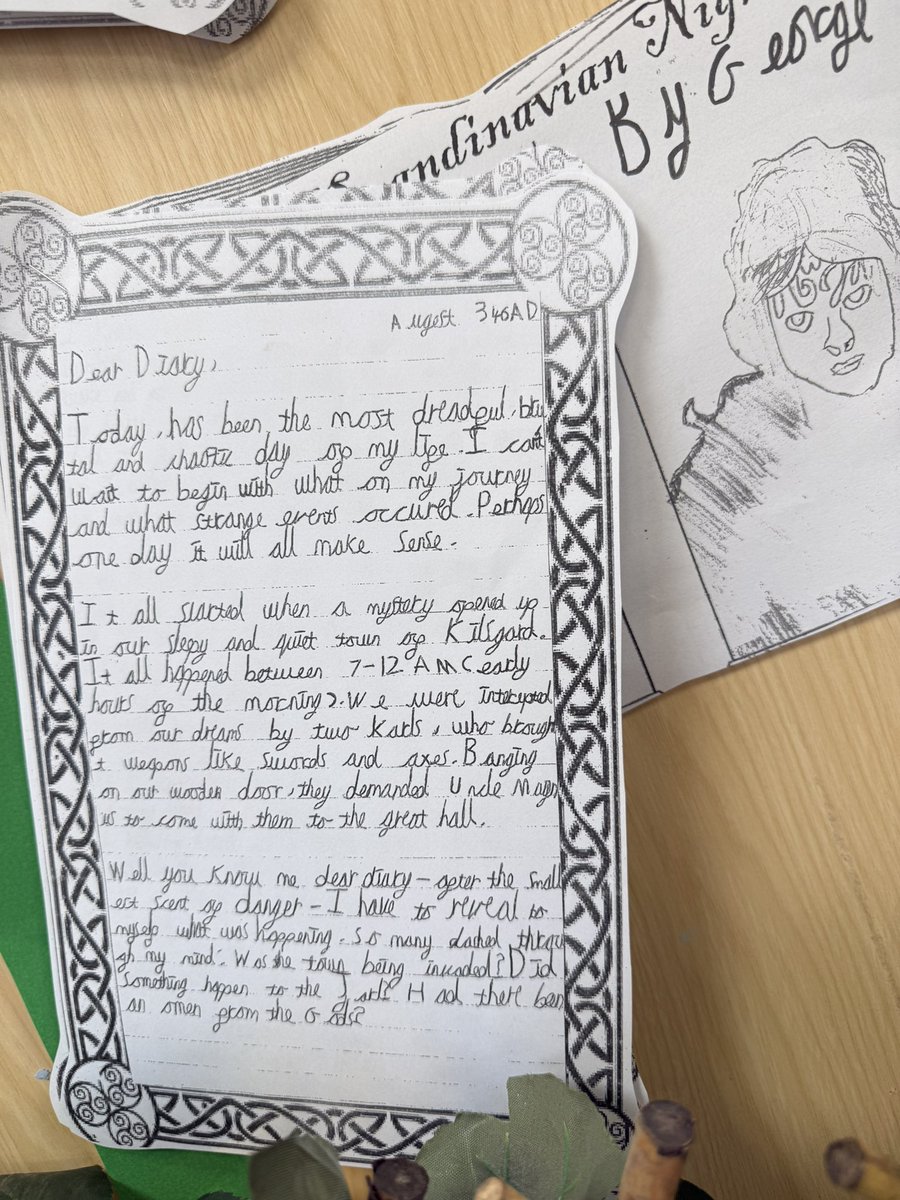 Scandinavian Nig
By George
Augest 346AD
Dear Diary,
Today, has been the most dreadful, bru
tal and chaotic day of my life. I can't
wait to begin with what on my journey
and what strange events occured. Perhaps
one day it will all make sense.
It all started when a mystery opened up
in our slepy and quiet town of Kilsgard.
It all happened between 7-12 AM (early
hours of the morning). We were intercepted
from our dreams by two Karls, who brough
t weapons like swords and axes. Banging
on our wooden door, they demanded Uncle Magn
us to come with them to the great hall.
Well you know me dear diary - after the small
est scent of danger - I have to reveal to
myself what was happening. So many dashed throu
gh my mind. Was the town being invaded? Did
something happen to the Jarl? Had there been
an omen from the Gods?